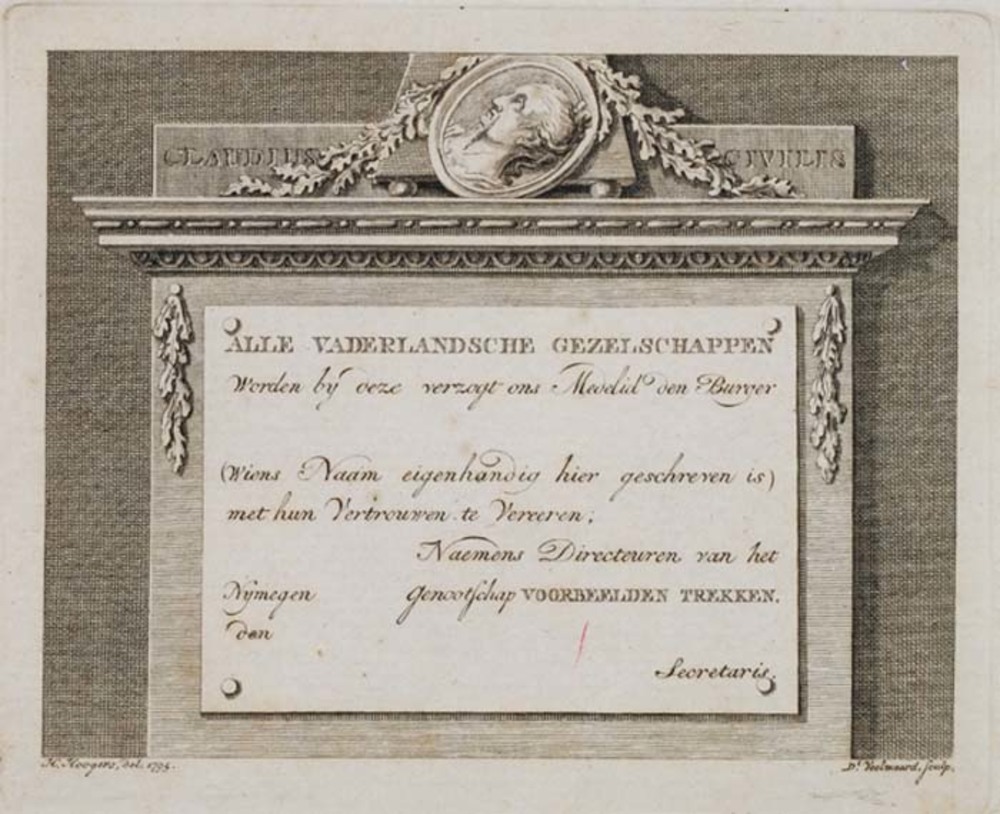 CLAUDIUS CIVILIS
ALLE VADERLANDSCHE GEZELSCHAPPEN
Worden by deze verzogt ons Medelid den Burger
(Wiens Naam eigenhandig hier geschreven is)
met hun Vertrouwen te Vereeren;
Naemens Directeuren van het
Nymegen Genootschap VOORBEELDEN TREKKEN.
den
Secretaris.
H. Hoogers, del. 1795.
Dk Veelwaard, sculp.